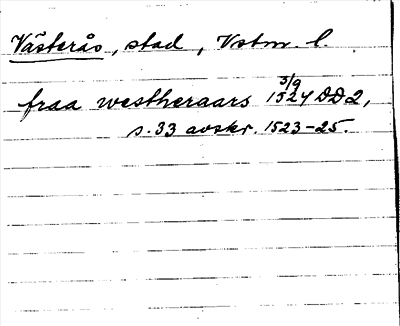 Västerås, stad, Vstm. l.
fraa westheraars 3/9 1524 DD2,
s. 33 avskr. 1523-25.